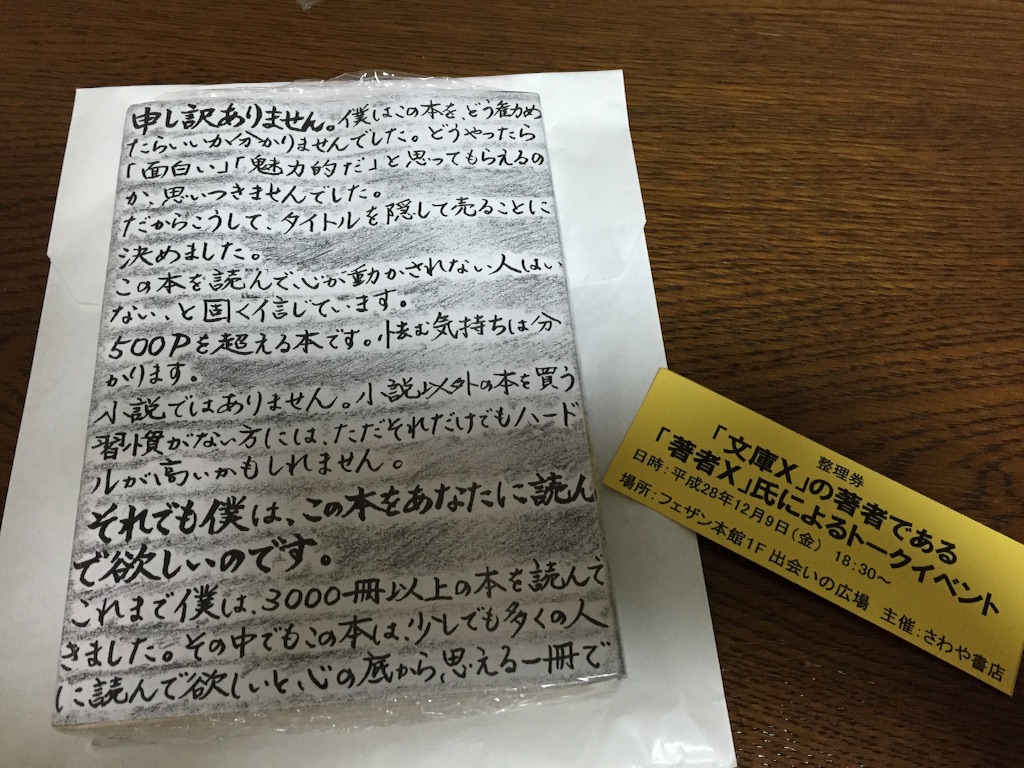 申し訳ありません。僕はこの本を、どう勧め
たらいいか分かりませんでした。どうやったら
「面白い」「魅力的だ」と思ってもらえるの
か、思いつきませんでした。
だからこうして、タイトルを隠して売ることに
決めました。
この本を読んで、心が動かされない人はい
ない、と固く信じています。
500Pを超える本です。怯む気持ちは分
かります。
小説ではありません。小説以外の本を買う
習慣がない方には、ただそれだけでもハード
ルが高いかもしれません。
それでも僕は、この本をあなたに読ん
で欲しいのです。
これまで僕は、3000冊以上の本を読んで
きました。その中でもこの本は、少しでも多くの人
に読んで欲しいと、心の底から思える一冊で
整理券
「文庫X」の著者である
「著者X」氏によるトークイベント
日時:平成28年12月9日(金) 18:30～
場所:フェザン本館1F 出会いの広場 主催:さわや書店